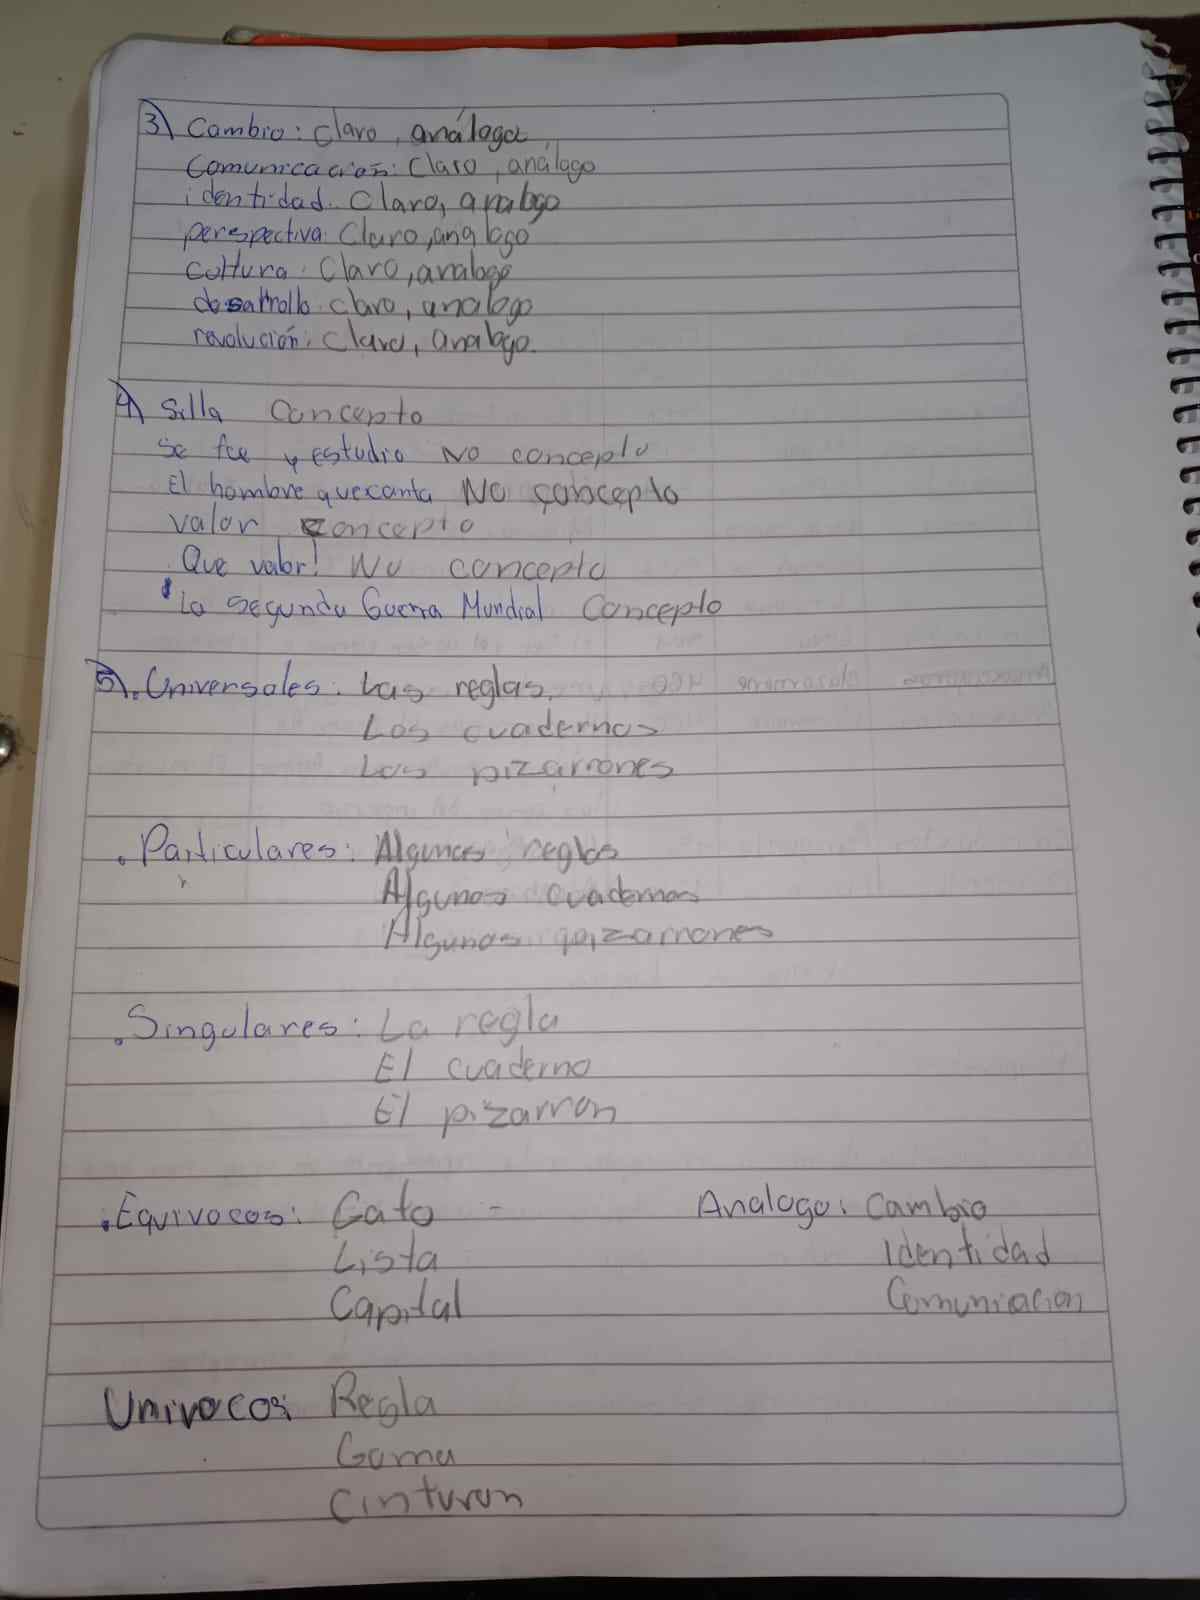 3) Cambio: claro, análogo
Comunicación: Claro, análogo
identidad: Claro, analogo
perspectiva: Claro, analogo
cultura: Claro, analogo
desarrollo: claro, analogo
revolución: Claro, analogo.
4) Silla Concepto
Se fue y estudio No concepto
El hombre que canta No concepto
valor concepto
Que valor! No concepto
La Segunda Guerra Mundial Concepto
5). Universales: Las reglas.
Los cuadernos
Los pizarrones
. Particulares: Algunas reglas
Algunos cuadernos
Algunos pizarrones
. Singulares: La regla
El cuaderno
El pizarron
. Equivocos: Gato - Analogo: Cambio
Lista Identidad
Capital Comuniacion
Univocos: Regla
Goma
Cinturon